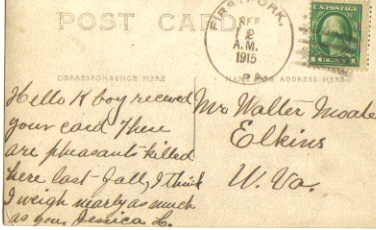 POST CARD
FIRST FORK.
SEP
2
A.M.
1915
PA.
CORRESPONDENCE HERE
NAME FOR ADDRESS HERE
Hello K boy received
your card These
are pheasants killed
here last fall, I think
I weigh nearly as much
as you. Jessica L.
Mr Walter Moate
Elkins
W. Va.